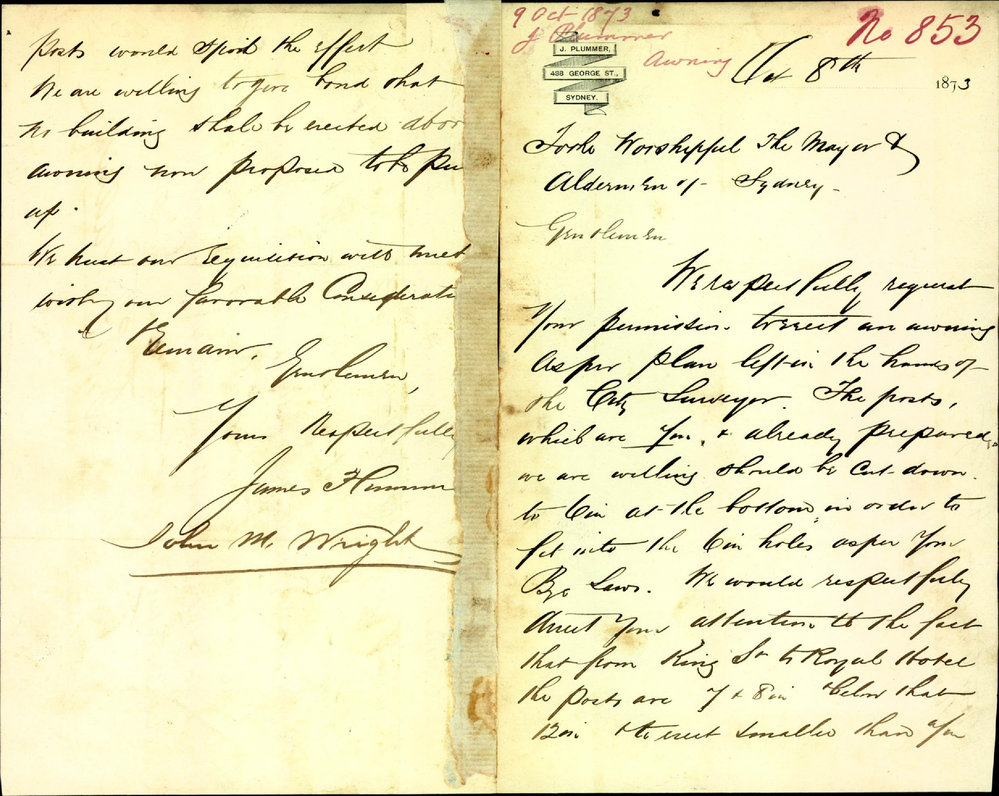 9 Oct 1873
J Plummer
Awning
No 853
J. PLUMMER,
488 GEORGE ST.,
SYDNEY.
Oct 8th 1873
To the Worshipful The Mayor &
Aldermen of Sydney
Gentlemen
We respectfully request
Your permission to erect an awning
as per plan left in the hands of
the City Surveyor. The posts,
which are 7in, & already prepared,
we are willing should be cut down
to 6in at the bottom, in order to
fit into the 6in holes as per Your
Bye Laws. We would respectfully
direct Your attention to the fact
that from King St to Royal Hotel
the posts are 7 & 8in & below that
12in & to erect smaller than 7in
posts would spoil the effect
We are willing to give bond that
no building shall be erected above
awning now proposed to be pu
up.
We trust our requisition will meet
with your favorable Considerati
& Remain,
Gentlemen,
Yours Respectfully
James
John M. Wright